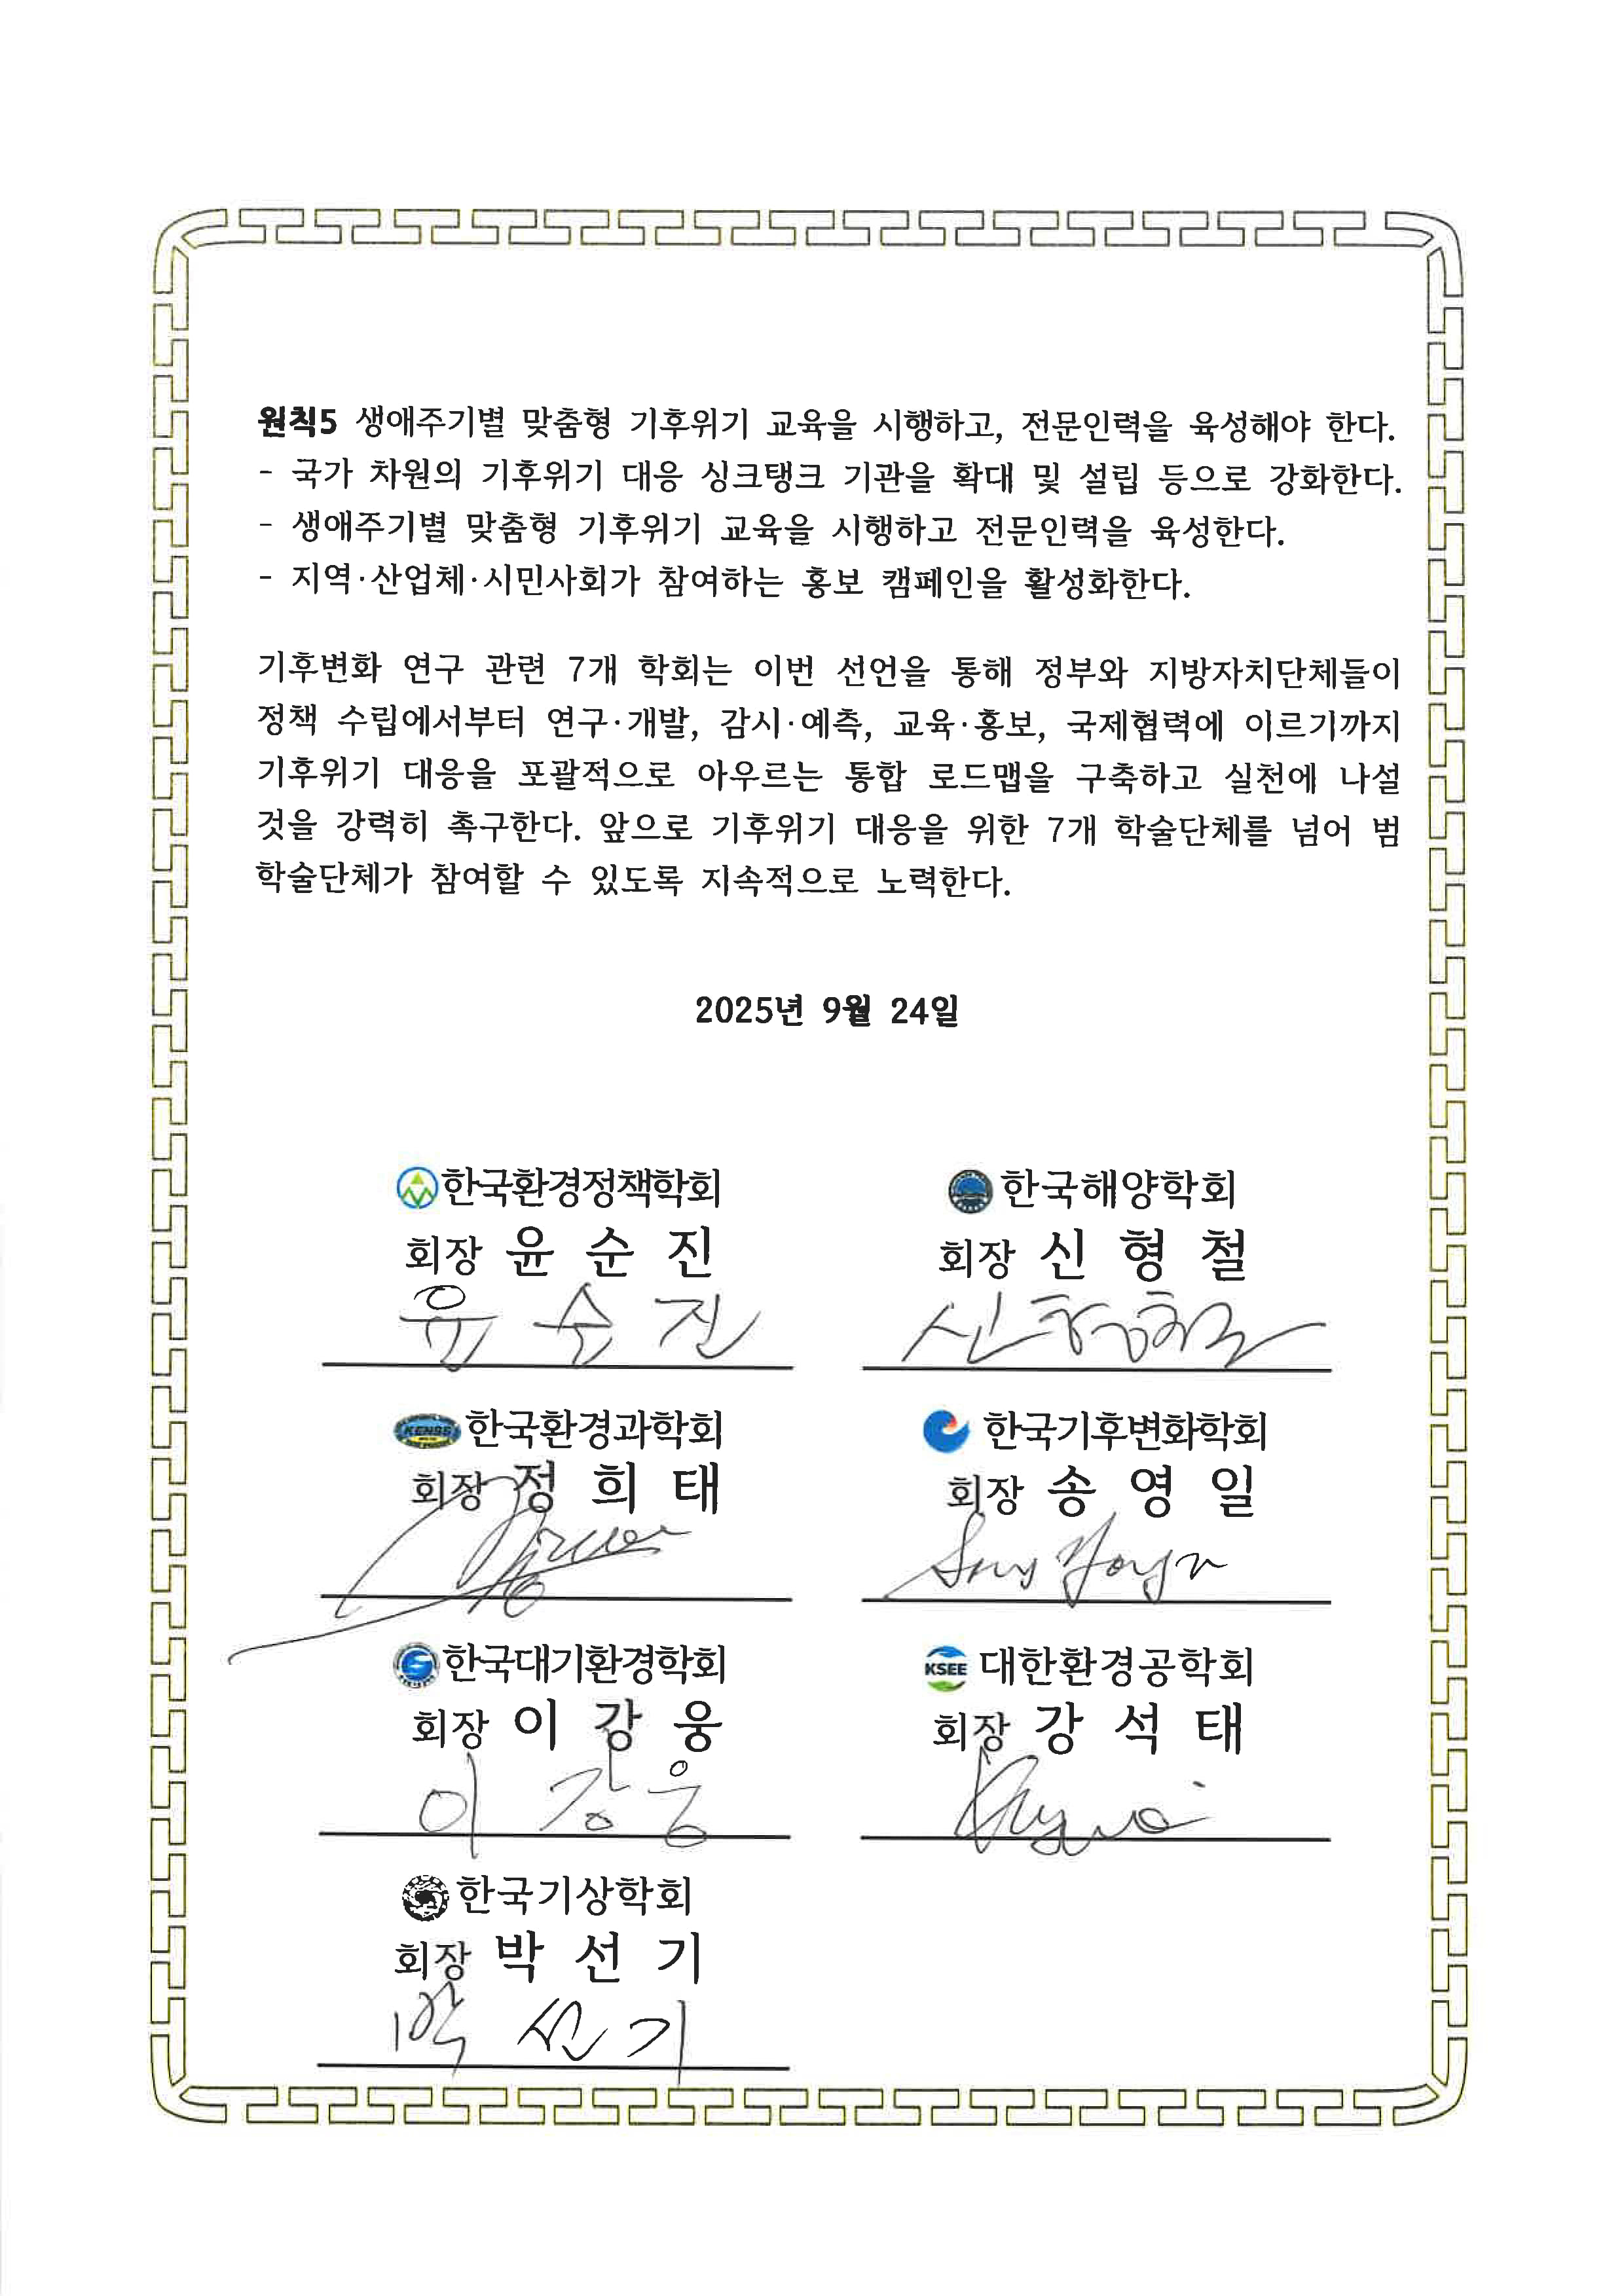 원칙5 생애주기별 맞춤형 기후위기 교육을 시행하고, 전문인력을 육성해야 한다.
- 국가 차원의 기후위기 대응 싱크탱크 기관을 확대 및 설립 등으로 강화한다.
- 생애주기별 맞춤형 기후위기 교육을 시행하고 전문인력을 육성한다.
- 지역·산업체·시민사회가 참여하는 홍보 캠페인을 활성화한다.
기후변화 연구 관련 7개 학회는 이번 선언을 통해 정부와 지방자치단체들이
정책 수립에서부터 연구·개발, 감시·예측, 교육·홍보, 국제협력에 이르기까지
기후위기 대응을 포괄적으로 아우르는 통합 로드맵을 구축하고 실천에 나설
것을 강력히 촉구한다. 앞으로 기후위기 대응을 위한 7개 학술단체를 넘어 범
학술단체가 참여할 수 있도록 지속적으로 노력한다.
2025년 9월 24일
한국환경정책학회
회장 윤 순 진
윤 순 진
한국해양학회
회장 신 형 철
신형철
KENSS 한국환경과학회
회장 정 희 태
한국기후변화학회
회장 송 영 일
한국대기환경학회
회장 이 강 웅
이 강 웅
KSEE 대한환경공학회
회장 강 석 태
한국기상학회
회장 박 선 기
박 선 기